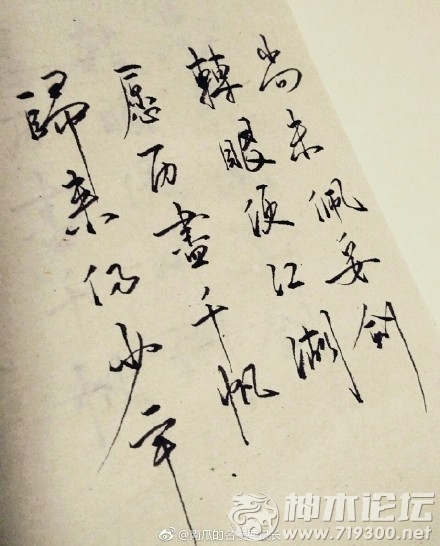 尚未佩妥剑
轉眼便江湖
愿历盡千帆
歸来仍少年
@南瓜的
神木论坛
www.719300.net